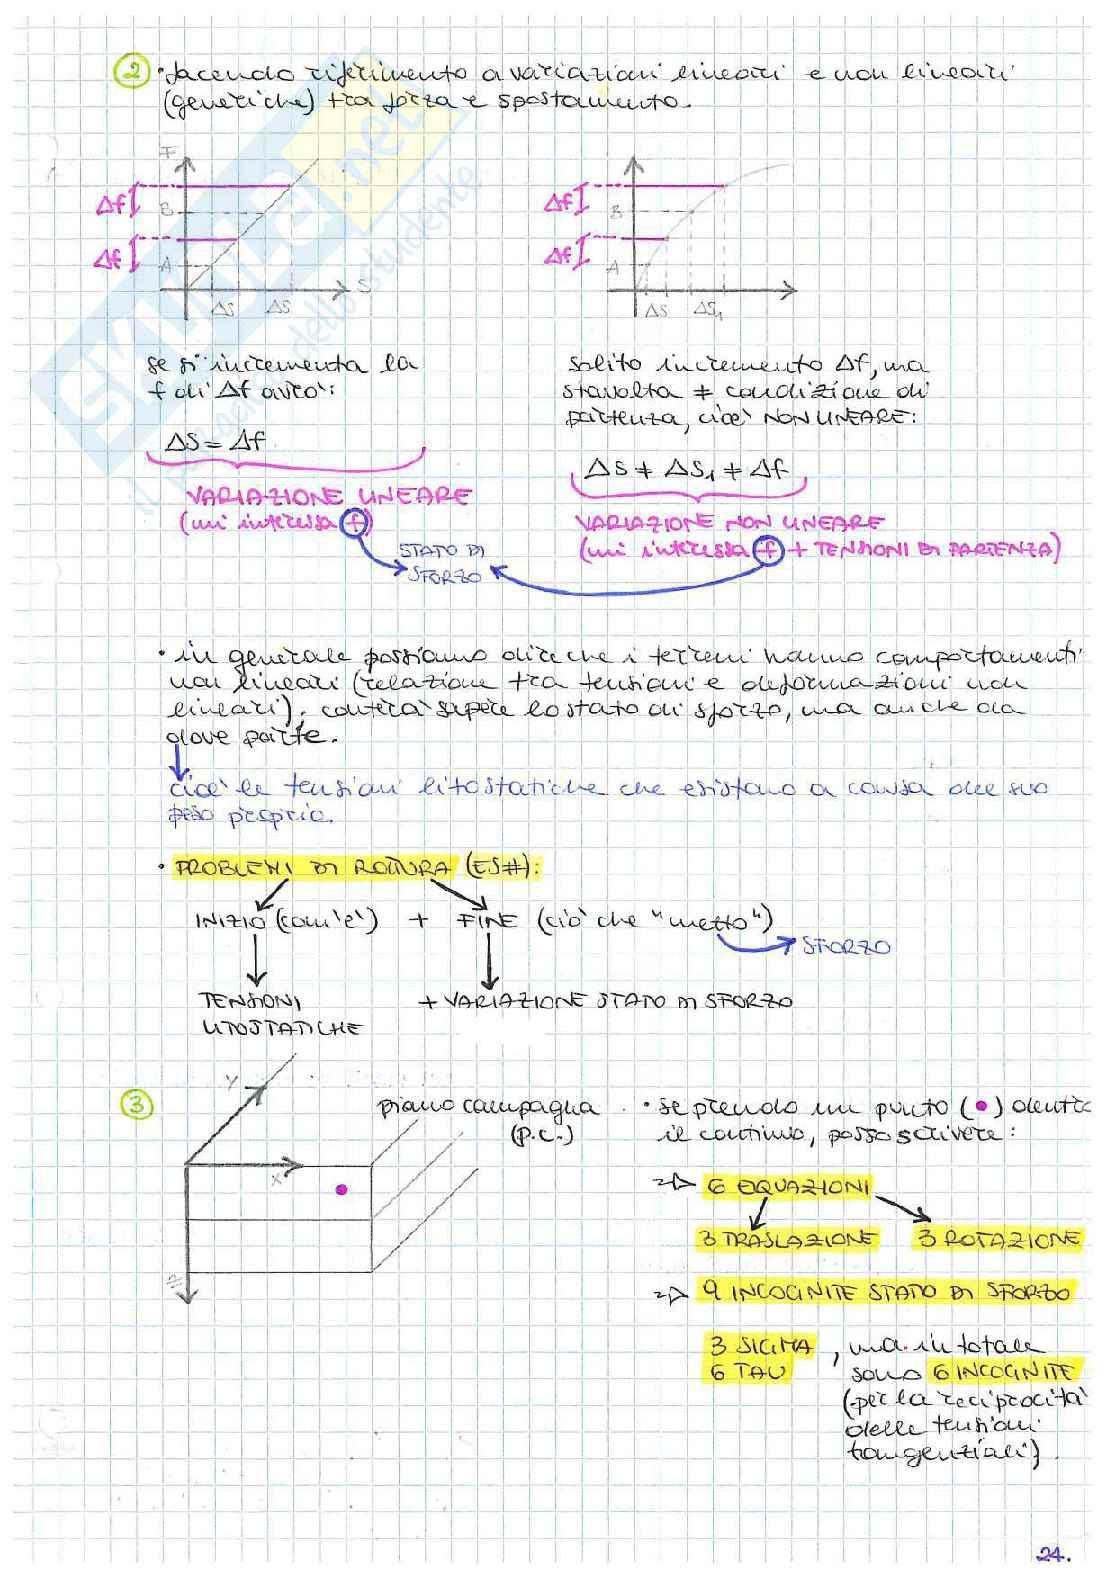 2 • facendo riferimento a variazioni lineari e non lineari
(generiche) tra forza e spostamento.
F
Δf
B
Δf
A
ΔS ΔS S
Δf
B
Δf
A
ΔS ΔS₁
se si incrementa la
f di Δf avrò:
ΔS = Δf
VARIAZIONE LINEARE
(mi interessa f)
STATO DI
SFORZO
solito incremento Δf, ma
stavolta ≠ condizione di
partenza, cioè NON LINEARE:
ΔS ≠ ΔS₁ ≠ Δf
VARIAZIONE NON LINEARE
(mi interessa f + TENSIONI DI PARTENZA)
• in generale possiamo dire che i terreni hanno comportamenti
non lineari (relazione tra tensioni e deformazioni non
lineari); conterà sapere lo stato di sforzo, ma anche da
dove parte.
cioè le tensioni litostatiche che esistono a causa del suo
peso proprio.
• PROBLEMI DI ROTTURA (ES#):
INIZIO (com'è) + FINE (ciò che "metto")
SFORZO
TENSIONI + VARIAZIONE STATO DI SFORZO
LITOSTATICHE
3
Y
X
Z
piano campagna
(p.c.)
• se prendo un punto (•) dentro
il continuo, posso scrivere:
=> 6 EQUAZIONI
3 TRASLAZIONE 3 ROTAZIONE
=> 9 INCOGNITE STATO DI SFORZO
3 SIGMA
6 TAU
, ma in totale
sono 6 INCOGNITE
(per la reciprocità
delle tensioni
tangenziali).
24.
SKUOLA.net
il paradiso dello studente